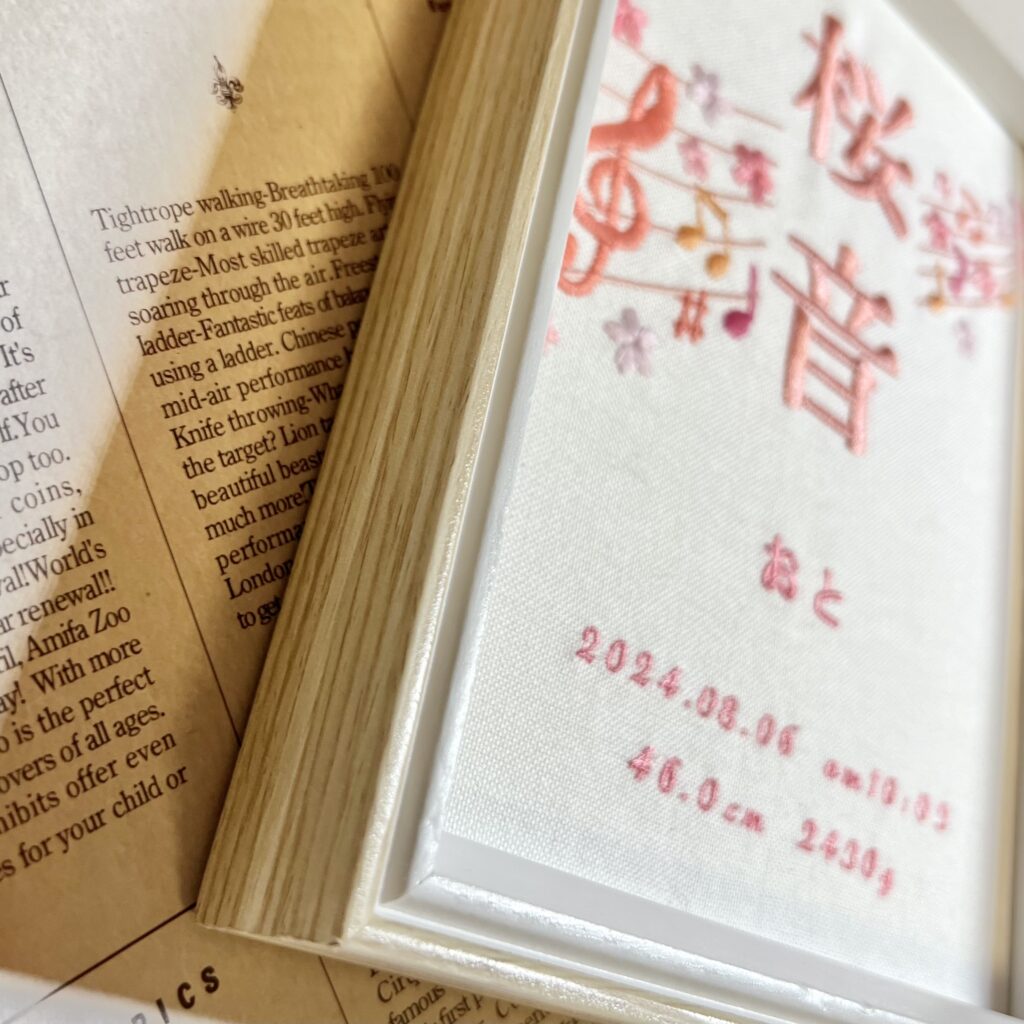 of
It's
after
f.You
op too.
coins,
ecially in
val!World's
ar renewal!!
il, Amifa Zoo
ay! With more
o is the perfect
overs of all ages.
hibits offer even
es for your child or
Tightrope walking-Breathtaking 100
feet walk on a wire 30 feet high. Flyi
trapeze-Most skilled trapeze ar
soaring through the air.Freest
ladder-Fantastic feats of balan
using a ladder. Chinese p
mid-air performance
Knife throwing-Wh
the target? Lion t
beautiful beast
much more!T
performa
London
to get
RICS
famous
first p
桜音
おと
2024.08.06 am10:03
46.0cm 2430g